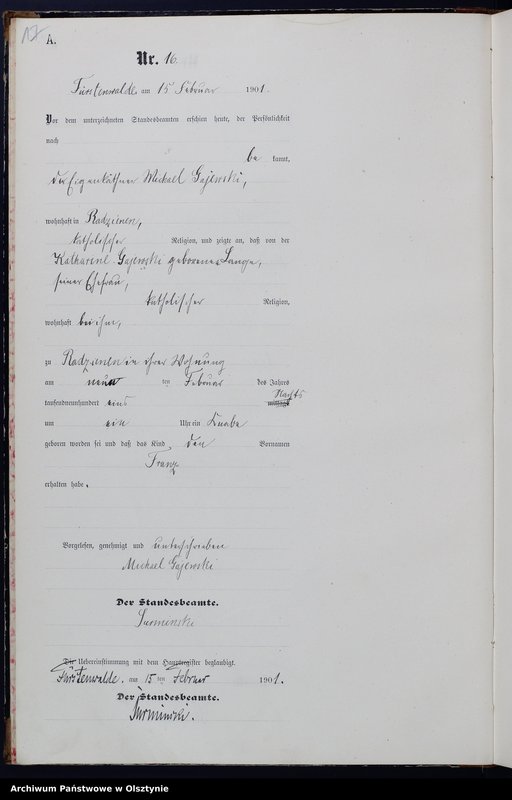 17
A.
Nr. 16.
Fürstenwalde, am 15 Februar 1901.
Vor dem unterzeichneten Standesbeamten erschien heute, der Persönlichkeit
nach
be kannt,
der Eigenkäthner Michael Gajewski,
wohnhaft in Radzienen,
katholischer Religion, und zeigte an, daß von der
Katharine Gajewski geborenen Lange,
seiner Ehefrau,
katholischer Religion,
wohnhaft bei ihm,
zu Radzienen in ihrer Wohnung
am neun ten Februar des Jahres
tausendneunhundert eins Nachts
um ein Uhr ein Knabe
geboren worden sei und daß das Kind den Vornamen
Franz
erhalten habe.
Vorgelesen, genehmigt und unterschrieben
Michael Gajewski
Der Standesbeamte.
Surminski
Die Uebereinstimmung mit dem Hauptregister beglaubigt.
Fürstenwalde, am 15 ten Februar 1901.
Der Standesbeamte.
Surminski.
Archiwum Państwowe w Olsztynie